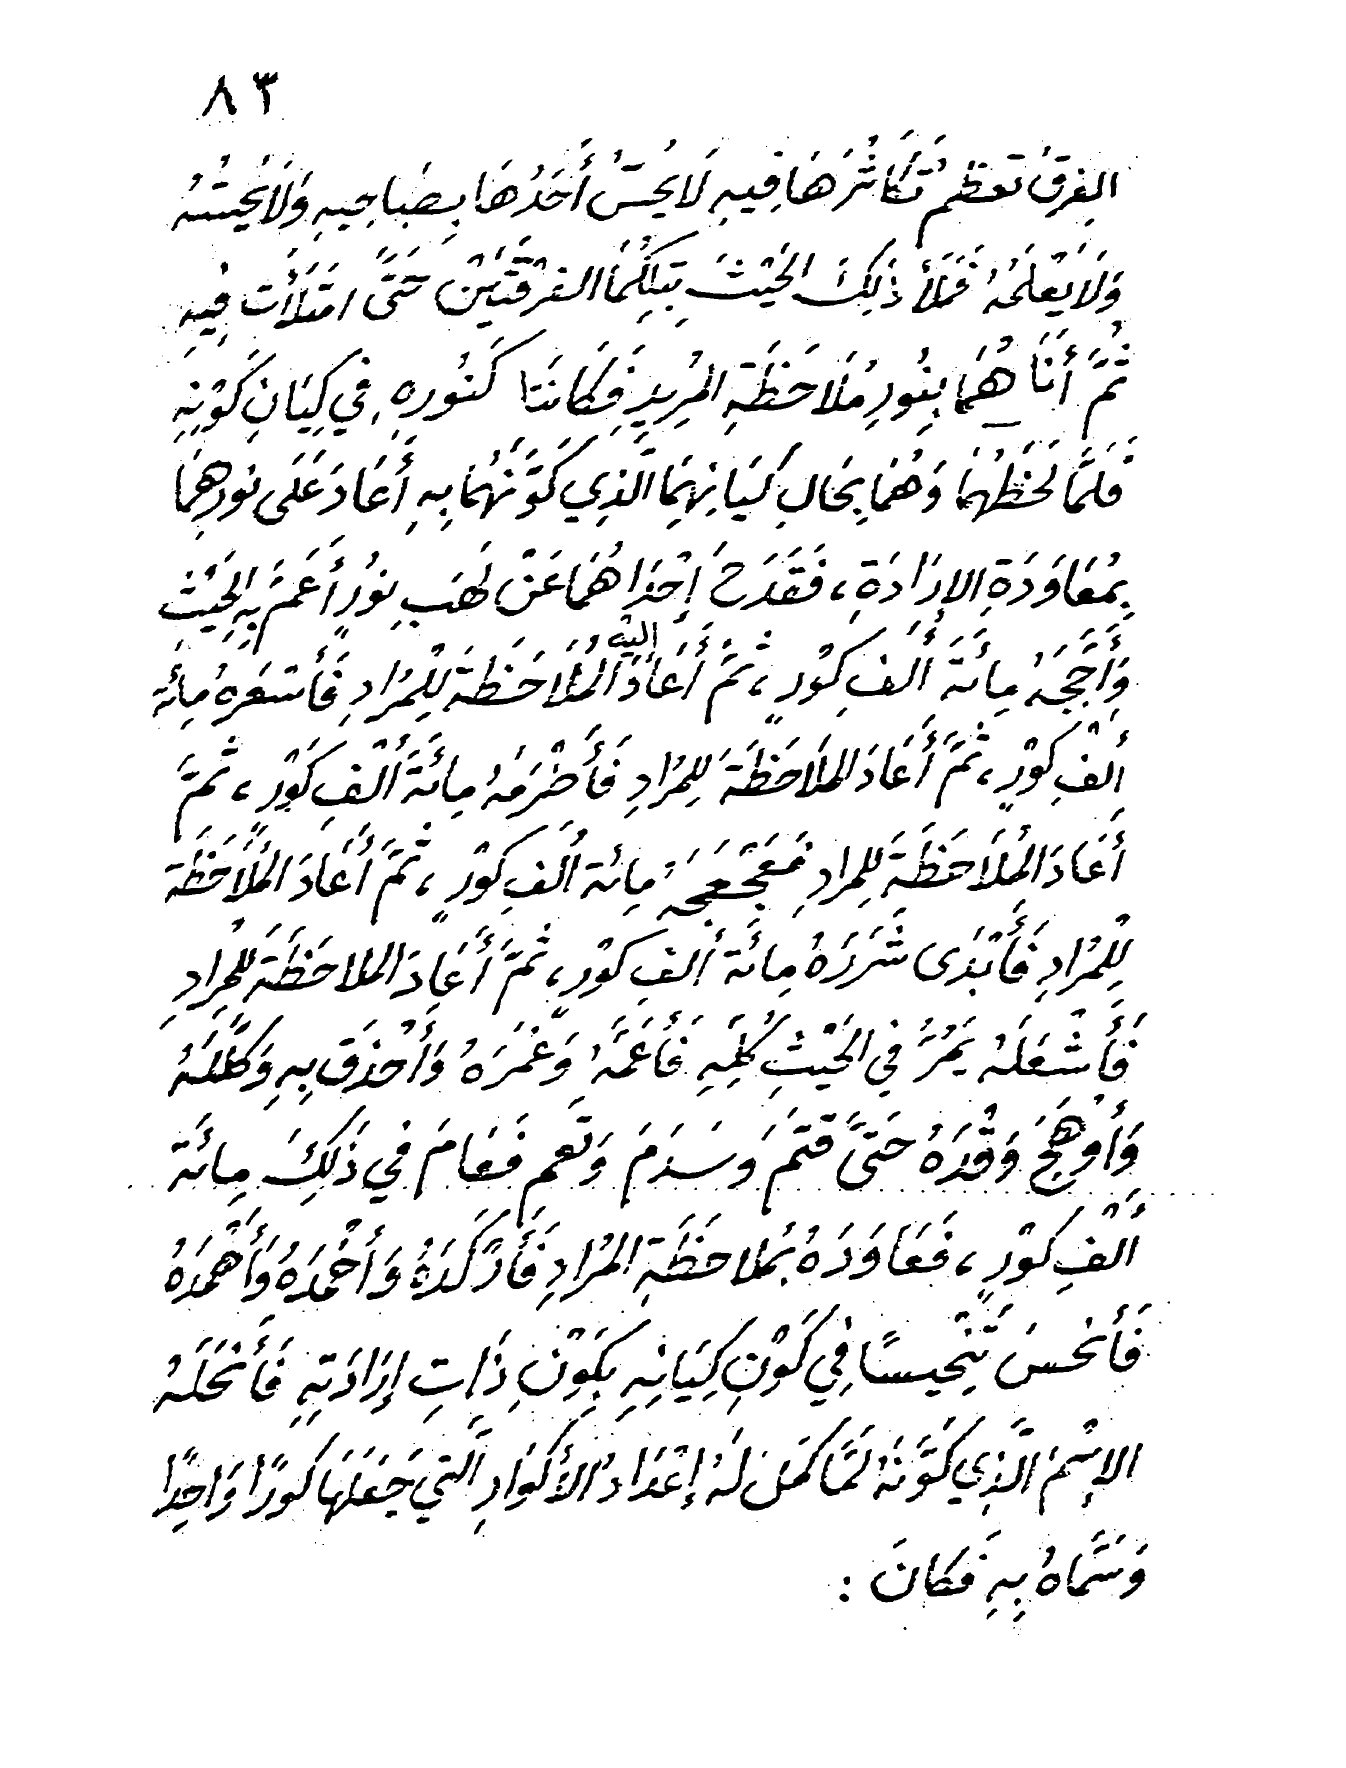 ٨٣
الفِرَقُ تَعَظُمُ تَكَاثُرَهَا فِيهِ لَا يُحِسُّ أَحَدُهَا بِصَاحِبِهِ وَلَا يُحِسُّهُ
وَلَا يَعْلَمُهُ فَمَلَأَ ذَلِكَ الحَيْثَ بِتِلْكُمَا الفِرْقَتَيْنِ حَتَّى امْتَلَأَتْ فِيهِ
ثُمَّ أَنَاهُمَا بِنُورِ مُلَاحَظَةِ المُرِيدِ فَكَانَتَا كَنُورِهِ فِي كِيَانِ كَوْنِهِ
فَلَمَّا لَحَظَهُمَا وَهُمَا بِحَالِ كِيَانِهِمَا الَّذِي كَوَّنَهُمَا بِهِ أَعَادَ عَلَى نُورِهِمَا
بِمُعَاوَدَةِ الإِرَادَةِ، فَقَدَحَ إِحْدَاهُمَا عَنْ لَهَبِ نُورٍ أَعَمَّ بِهِ الحَيْثَ
وَأَجَّجَهُ مِائَةَ أَلْفِ كَوْرٍ، ثُمَّ أَعَادَ إليه المُلَاحَظَةَ لِلْمُرَادِ فَأَسْعَرَهُ مِائَة
أَلْفِ كَوْرٍ، ثُمَّ أَعَادَ المُلَاحَظَةَ لِلمُرَادِ فَأَضْرَمَهُ مِائَةَ أَلْفِ كَوْرٍ، ثُمَّ
أَعَادَ المُلَاحَظَةَ لِلمُرادِ فَعَجْعَجَهُ مِائة أَلفِ كَوْرٍ، ثُمَّ أَعَادَ المُلَاحَظَة
لِلْمُرَادِ فَأَبْدَى شَرَرَهُ مِائَة أَلفِ كَوْرٍ، ثُمَّ أَعَادَ الملاحَظَةَ لِلْمُرَادِ
فَأَشْعَلَهُ يَمُرُّ فِي الحَيْثِ كُلِّهِ فَأَعَمَّهُ وَغَمَرَهُ وَأَحْدَقَ بِهِ وَكَلَّلَهُ
وَأَوْهَجَ وَقْدَهُ حَتَّى قَتَمَ وَسَدَمَ وَتَعِم فَعَامَ فِي ذَلِكَ مِائَة
أَلْفِ كَوْرٍ، فَعَاوَدَهُ بِمُلاحَظَةِ المُرَادِ فَأَرْكَدَهُ وَأَخْمَدَهُ وَأَهْمَدَهُ
فَأَنْحَسَ تَنْحِيسًا فِي كَوْنِ كِيَانِهِ بِكَوْنِ ذَاتِ إِرَادَتِهِ فَأَنْحَلَهُ
الإِسْمَ الَّذِي كَوَّنَهُ لَمَّا كَمَلَ لَهُ إِعْدَادُ الأَكْوَارِ الَّتِي جَعَلَهَا كَورًا وَاحِدًا
وَسَمَّاهُ بِهِ فَكَانَ :